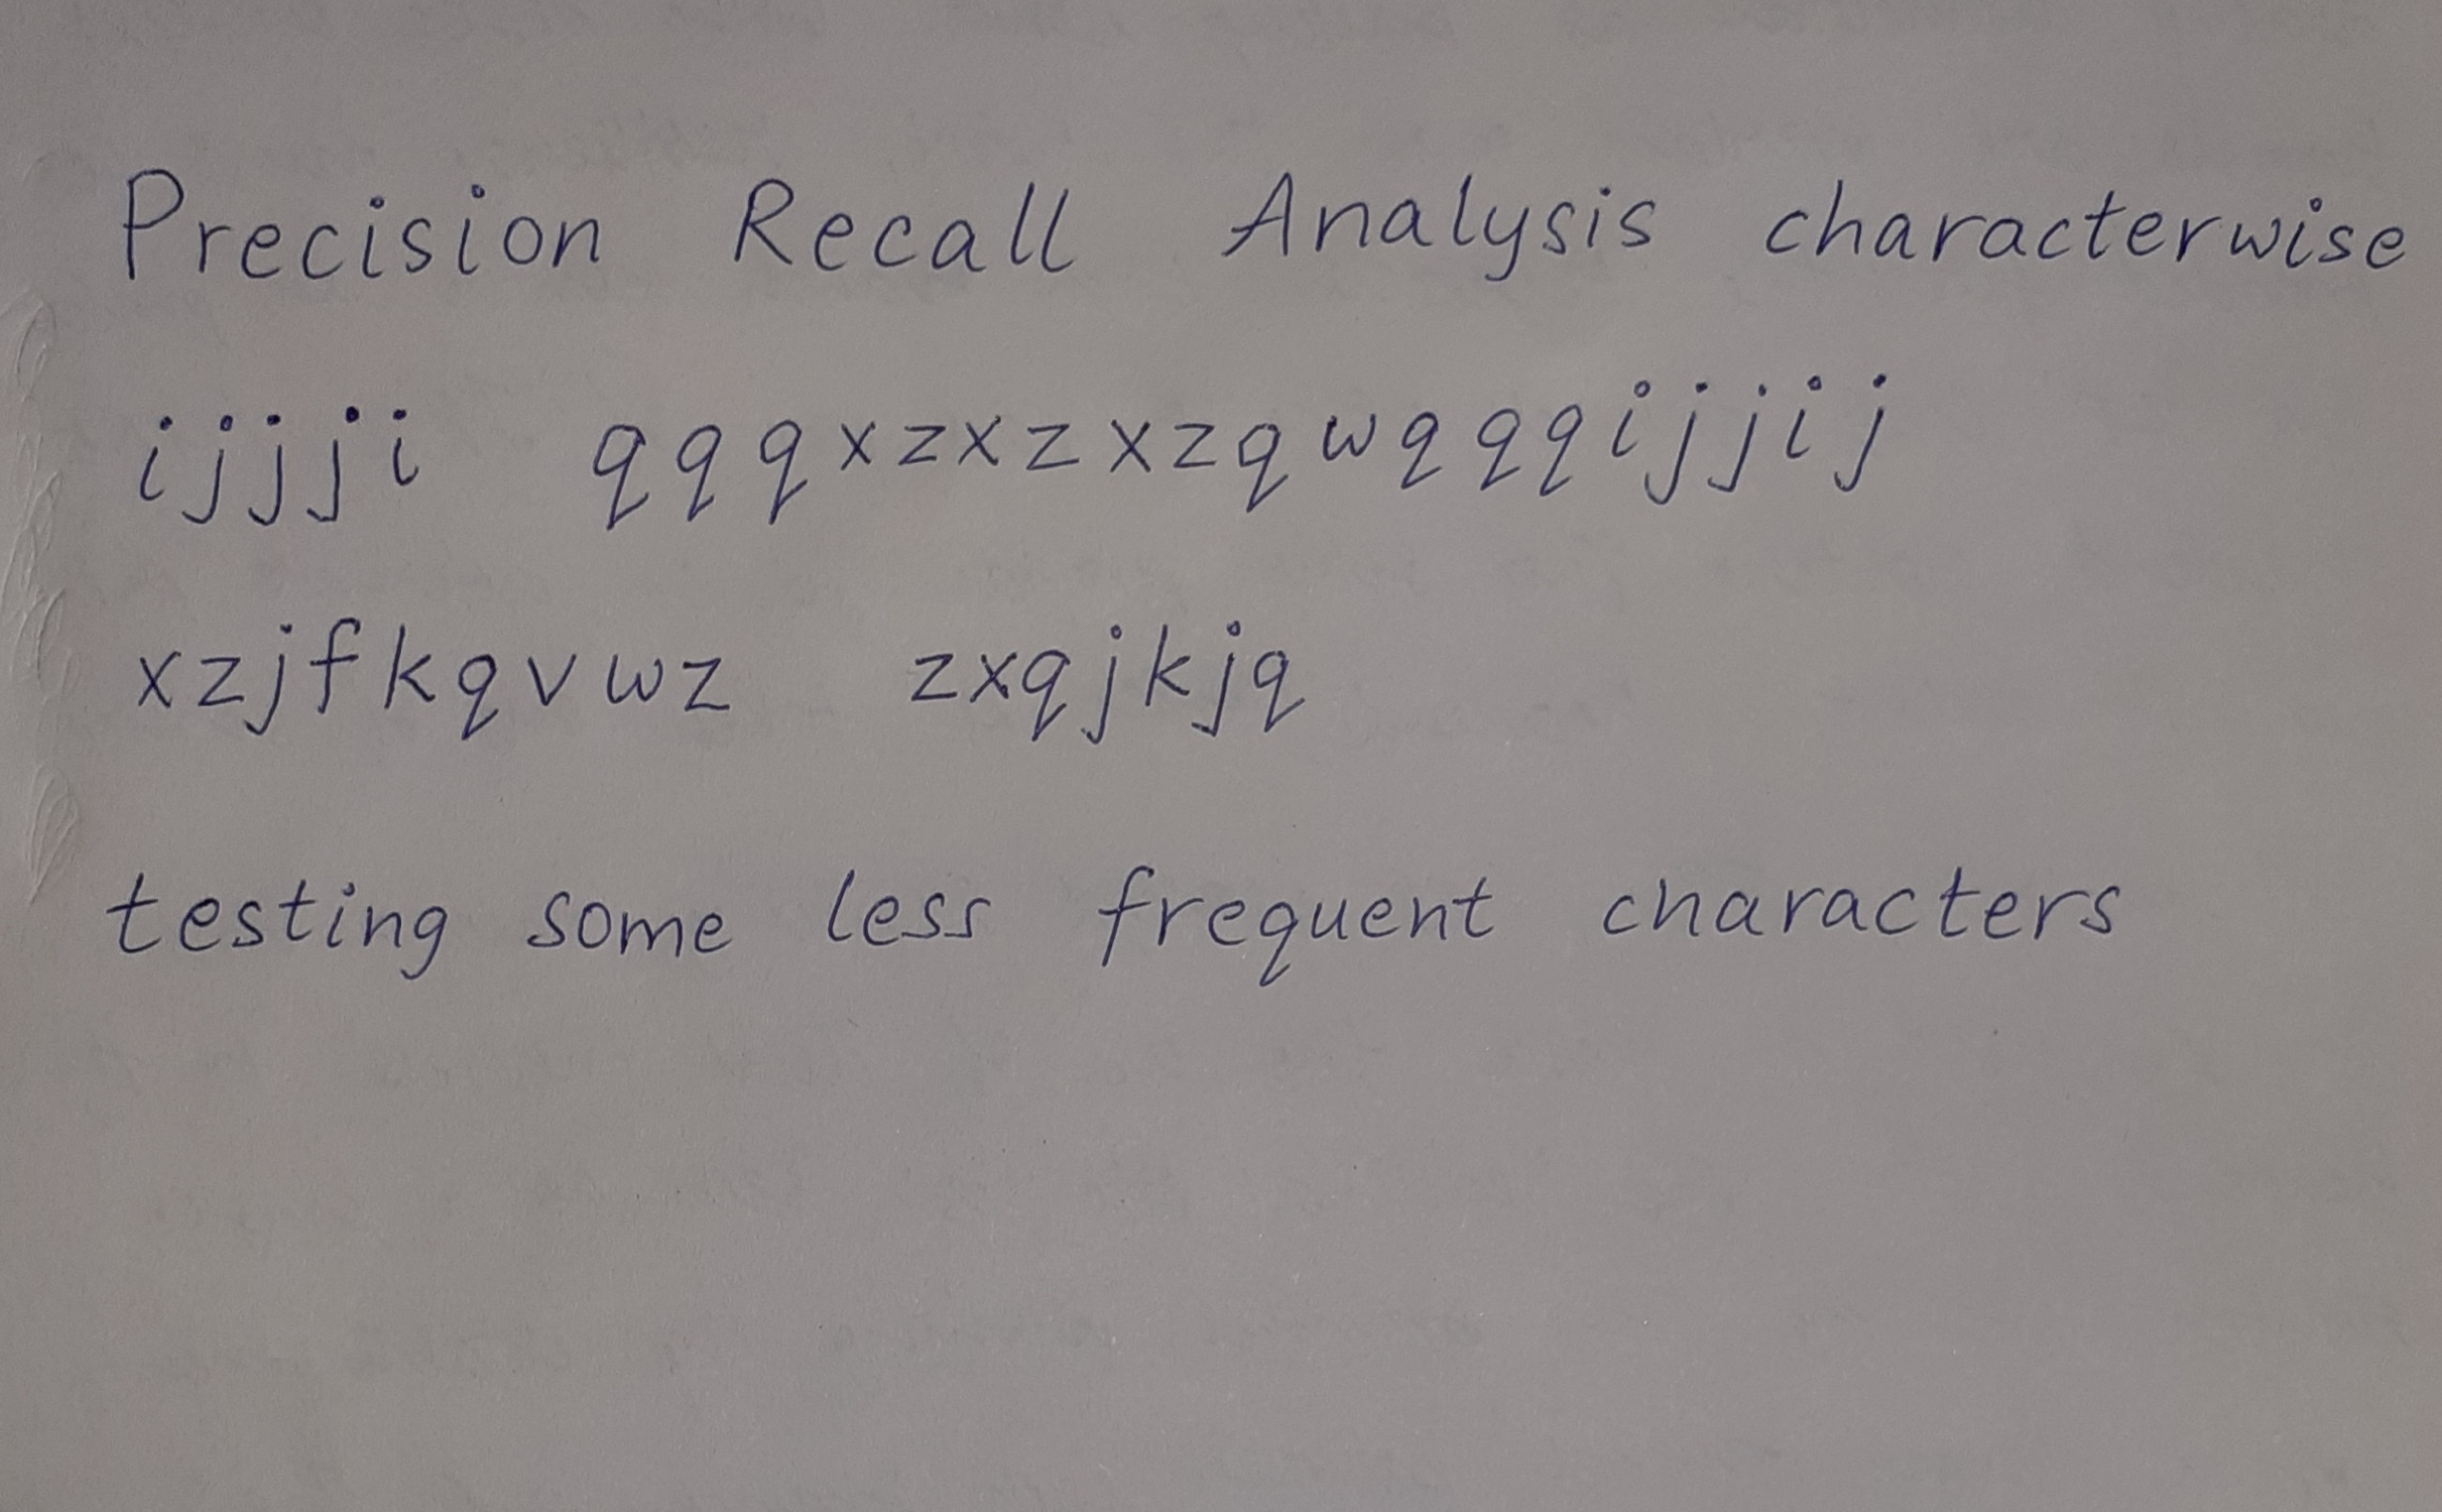 Precision Recall Analysis characterwise
ijjji qqqxzxzxzqwqqqijjij
xzjfkqvwz zxqjkjq
testing some less frequent characters